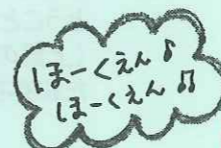 ほーくえん♪
ほーくえん♫